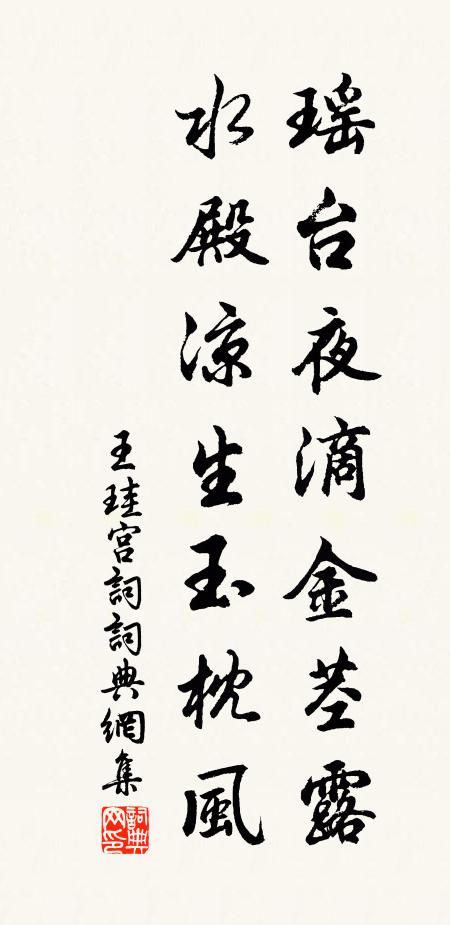 瑶台夜滴金茎露
水殿凉生玉枕風
王珪宫詞詞典網集
詞典网印